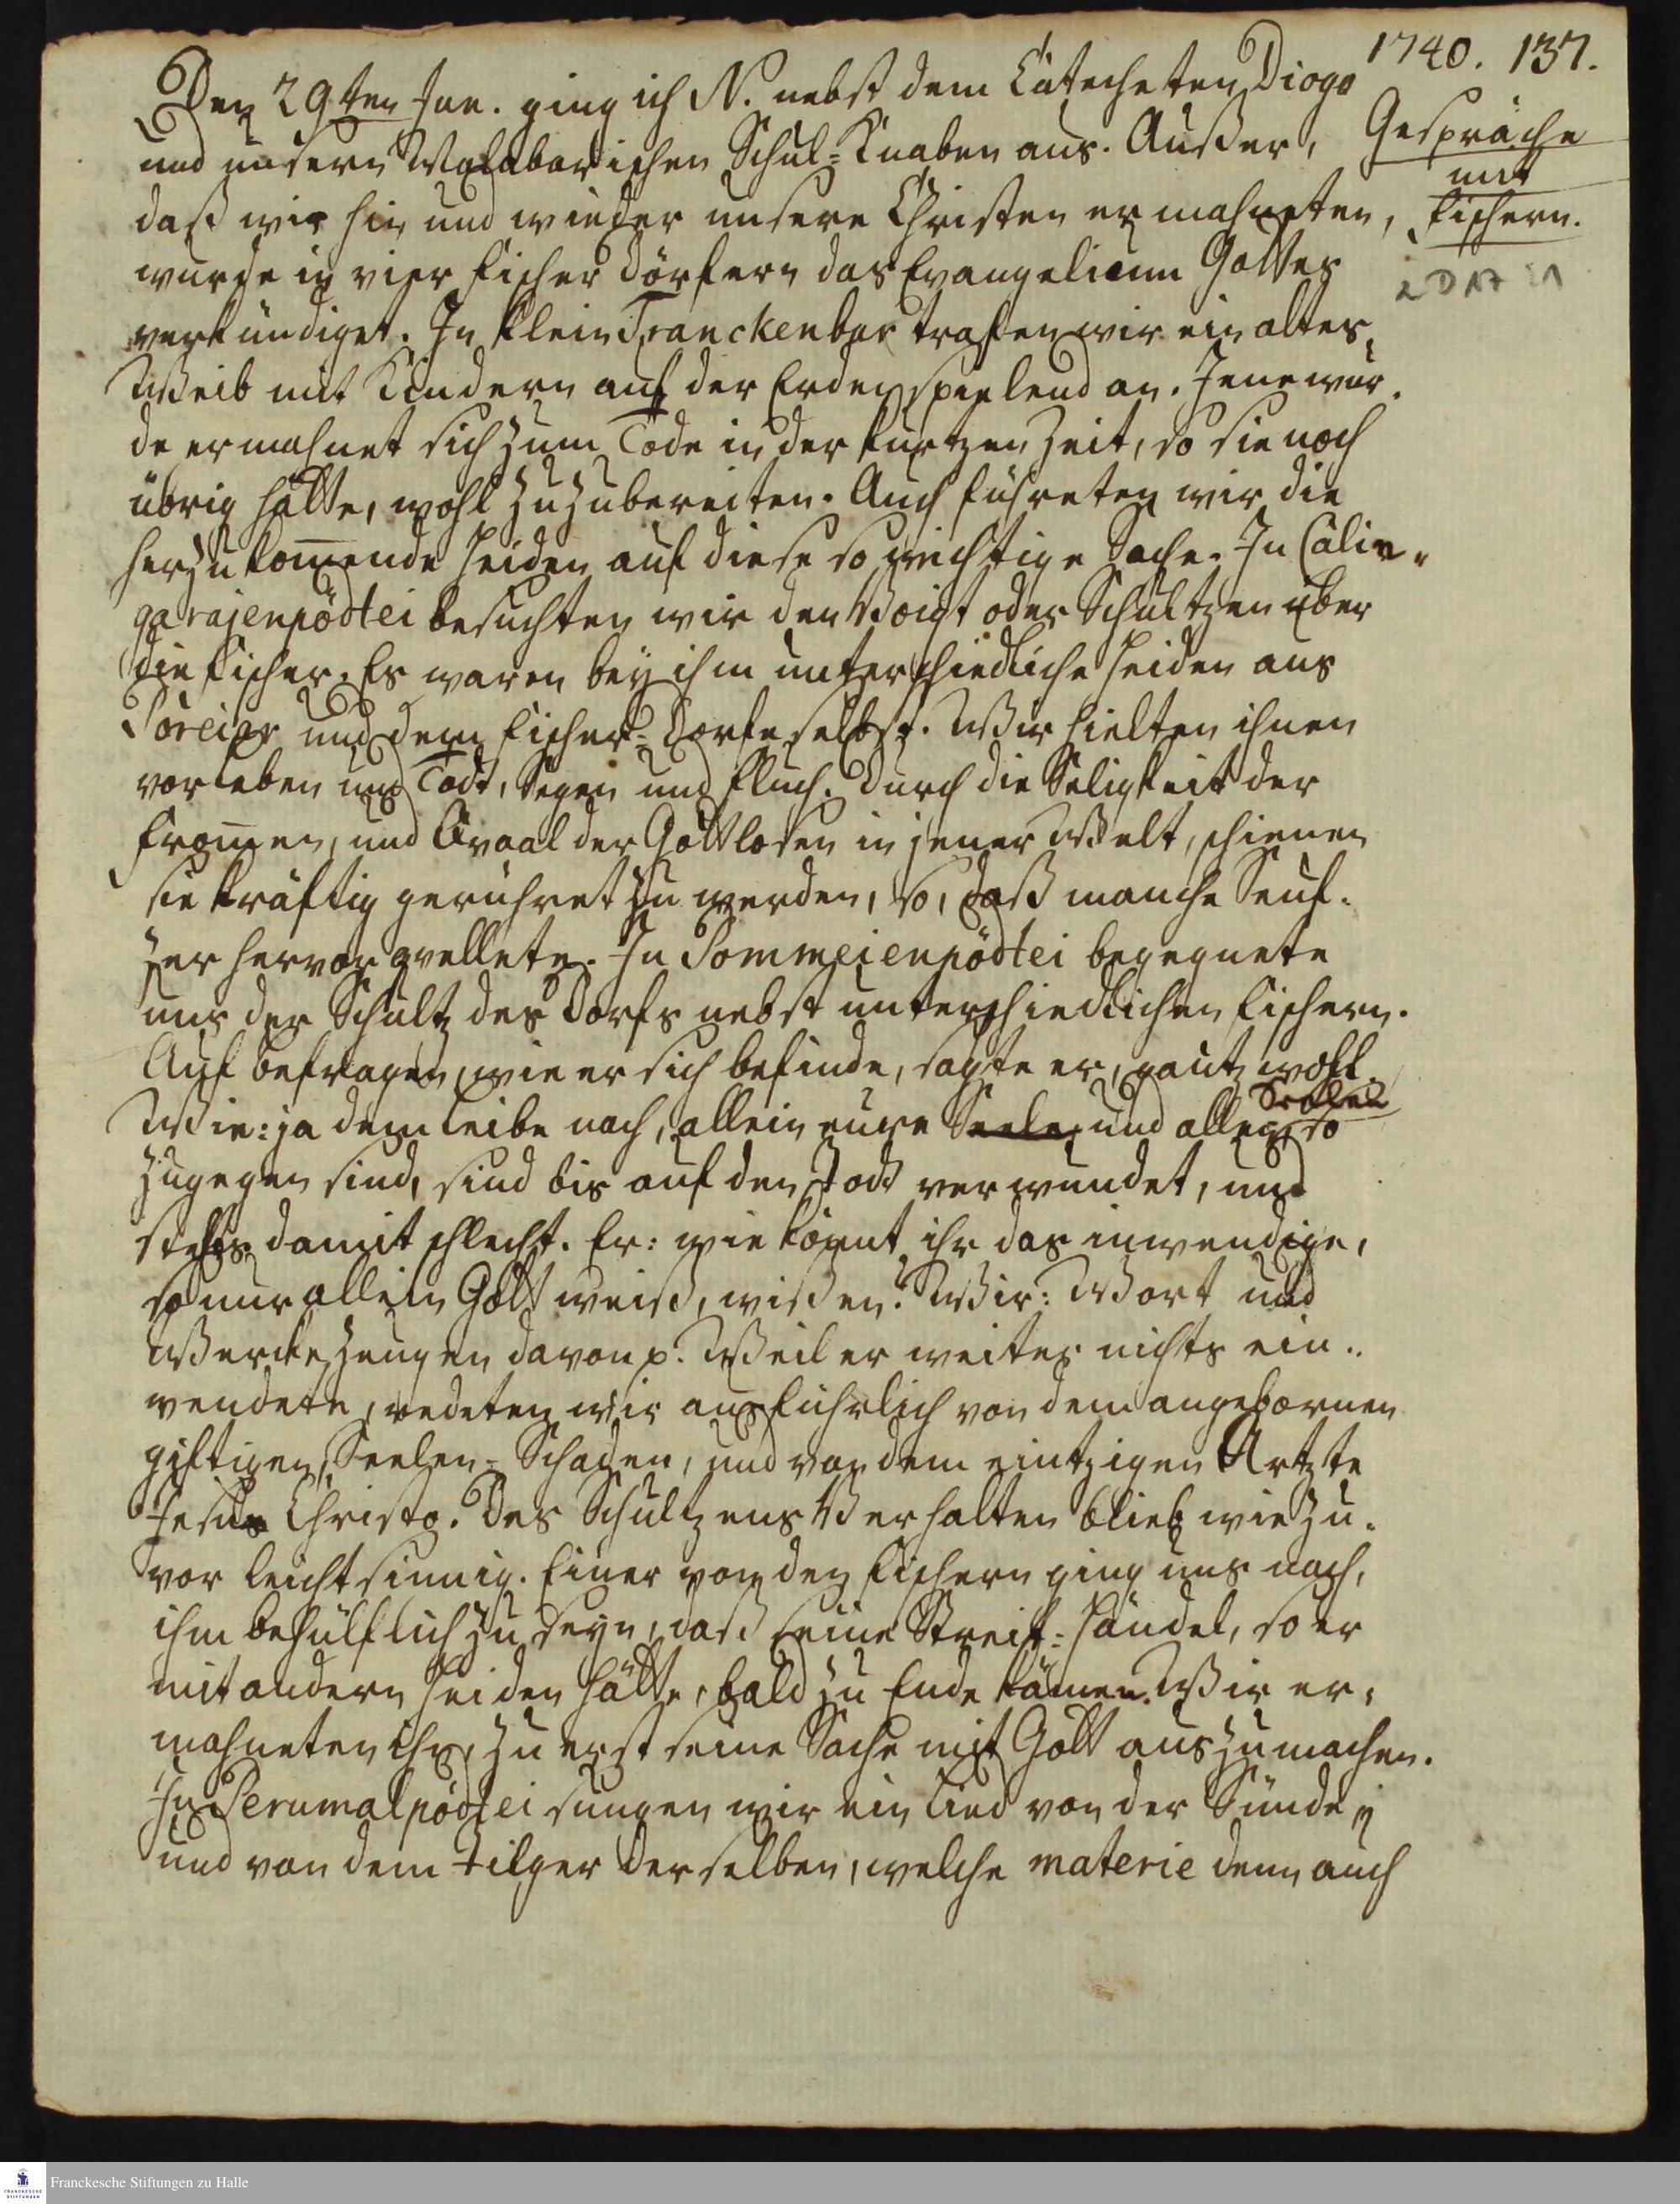 1740. 137.
Den 29ten Jan. ging ich N. nebst dem Catecheten Diogo
und unsern Malabarischen Schul-Knaben aus. Außer,
Gespräche
mit
Fischern.
2 D 17 21
daß wir hin und wieder unsere Christen ermahneten,
wurde in vier Fischer Dörfern das Evangelium Gottes
verkündiget. In klein Tranckenbar trafen wir ein altes
Weib mit Kindern auf der Erden spielend an. Jene wur-
de ermahnet sich zum Tode in der kurtzen Zeit, so sie noch
übrig hätte, wohl zuzubereiten. Auch führeten wir die
herzukom̄ende Heiden auf diese so wichtige Sache. In Calin-
garajenpödtei besuchten wir den Voigt oder Schultzen über
die Fischer. Es waren bey ihm unterschiedliche Heiden aus
Poreiar und dem Fischer-Dorfe selbst. Wir hielten ihnen
vor Leben und Todt, Segen und Fluch. Durch die Seligkeit der
From̄en, und Qvaal der Gottlosen in jener Welt, schienen
sie kräftig gerühret zu werden, so, daß manche Seuf-
zer hervor qvellete. In Sommeienpödtei begegnete
uns der Schultz des Dorfs nebst unterschiedlichen Fischern.
Auf Befragen, wie er sich befinde, sagte er, gantz wohl.
Wir: ja dem Leibe nach, allein eure Seele und aller, so
Seelen
zugegen sind, sind bis auf den Todt verwundet, und
stehts damit schlecht. Er: wie könnt ihr das inwendige,
so nur allein Gott weiß, wißen? Wir: Wort und
Wercke zeugen davon p. Weil er weiter nichts ein-
wendete, redeten wir ausführlich von dem angebornen
giftigen Seelen-Schaden, und von dem eintzigen Artzte
Jesus Christo. Des Schultzens Verhalten blieb wie zu-
vor leichtsinnig. Einer von den Fischern ging uns nach,
ihm behülflich zu seyn, daß seine Streit-Händel, so er
mit andern Heiden hätte, bald zu Ende kämen. Wir er-
mahneten ihn, zu erst seine Sache mit Gott auszumachen.
In Perumalpödtei sungen wir ein Lied von der Sünde
und von dem Tilger derselben, welche materie denn auch
Franckesche Stiftungen zu Halle